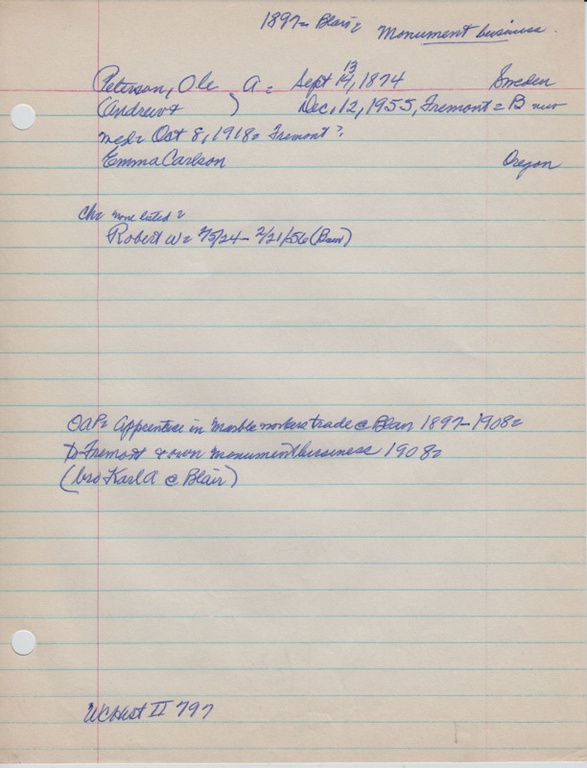 1897- Blair= Monument business.
Peterson, Ole A = Sept 13 14, 1874 Sweden
(Andrew + ) Dec. 12, 1955, Fremont = B
med= Oct 8, 1918= Fremont?
Emma Carlson Oregon
Ch= none listed=
Robert W= 7/5/24 - 2/21/56 (Bur)
OAP= Apprentice in marble workers trade @ Blair 1897-1908=
to Fremont + own monument business 1908=
(bro Karl A @ Blair)
WCHist II 797